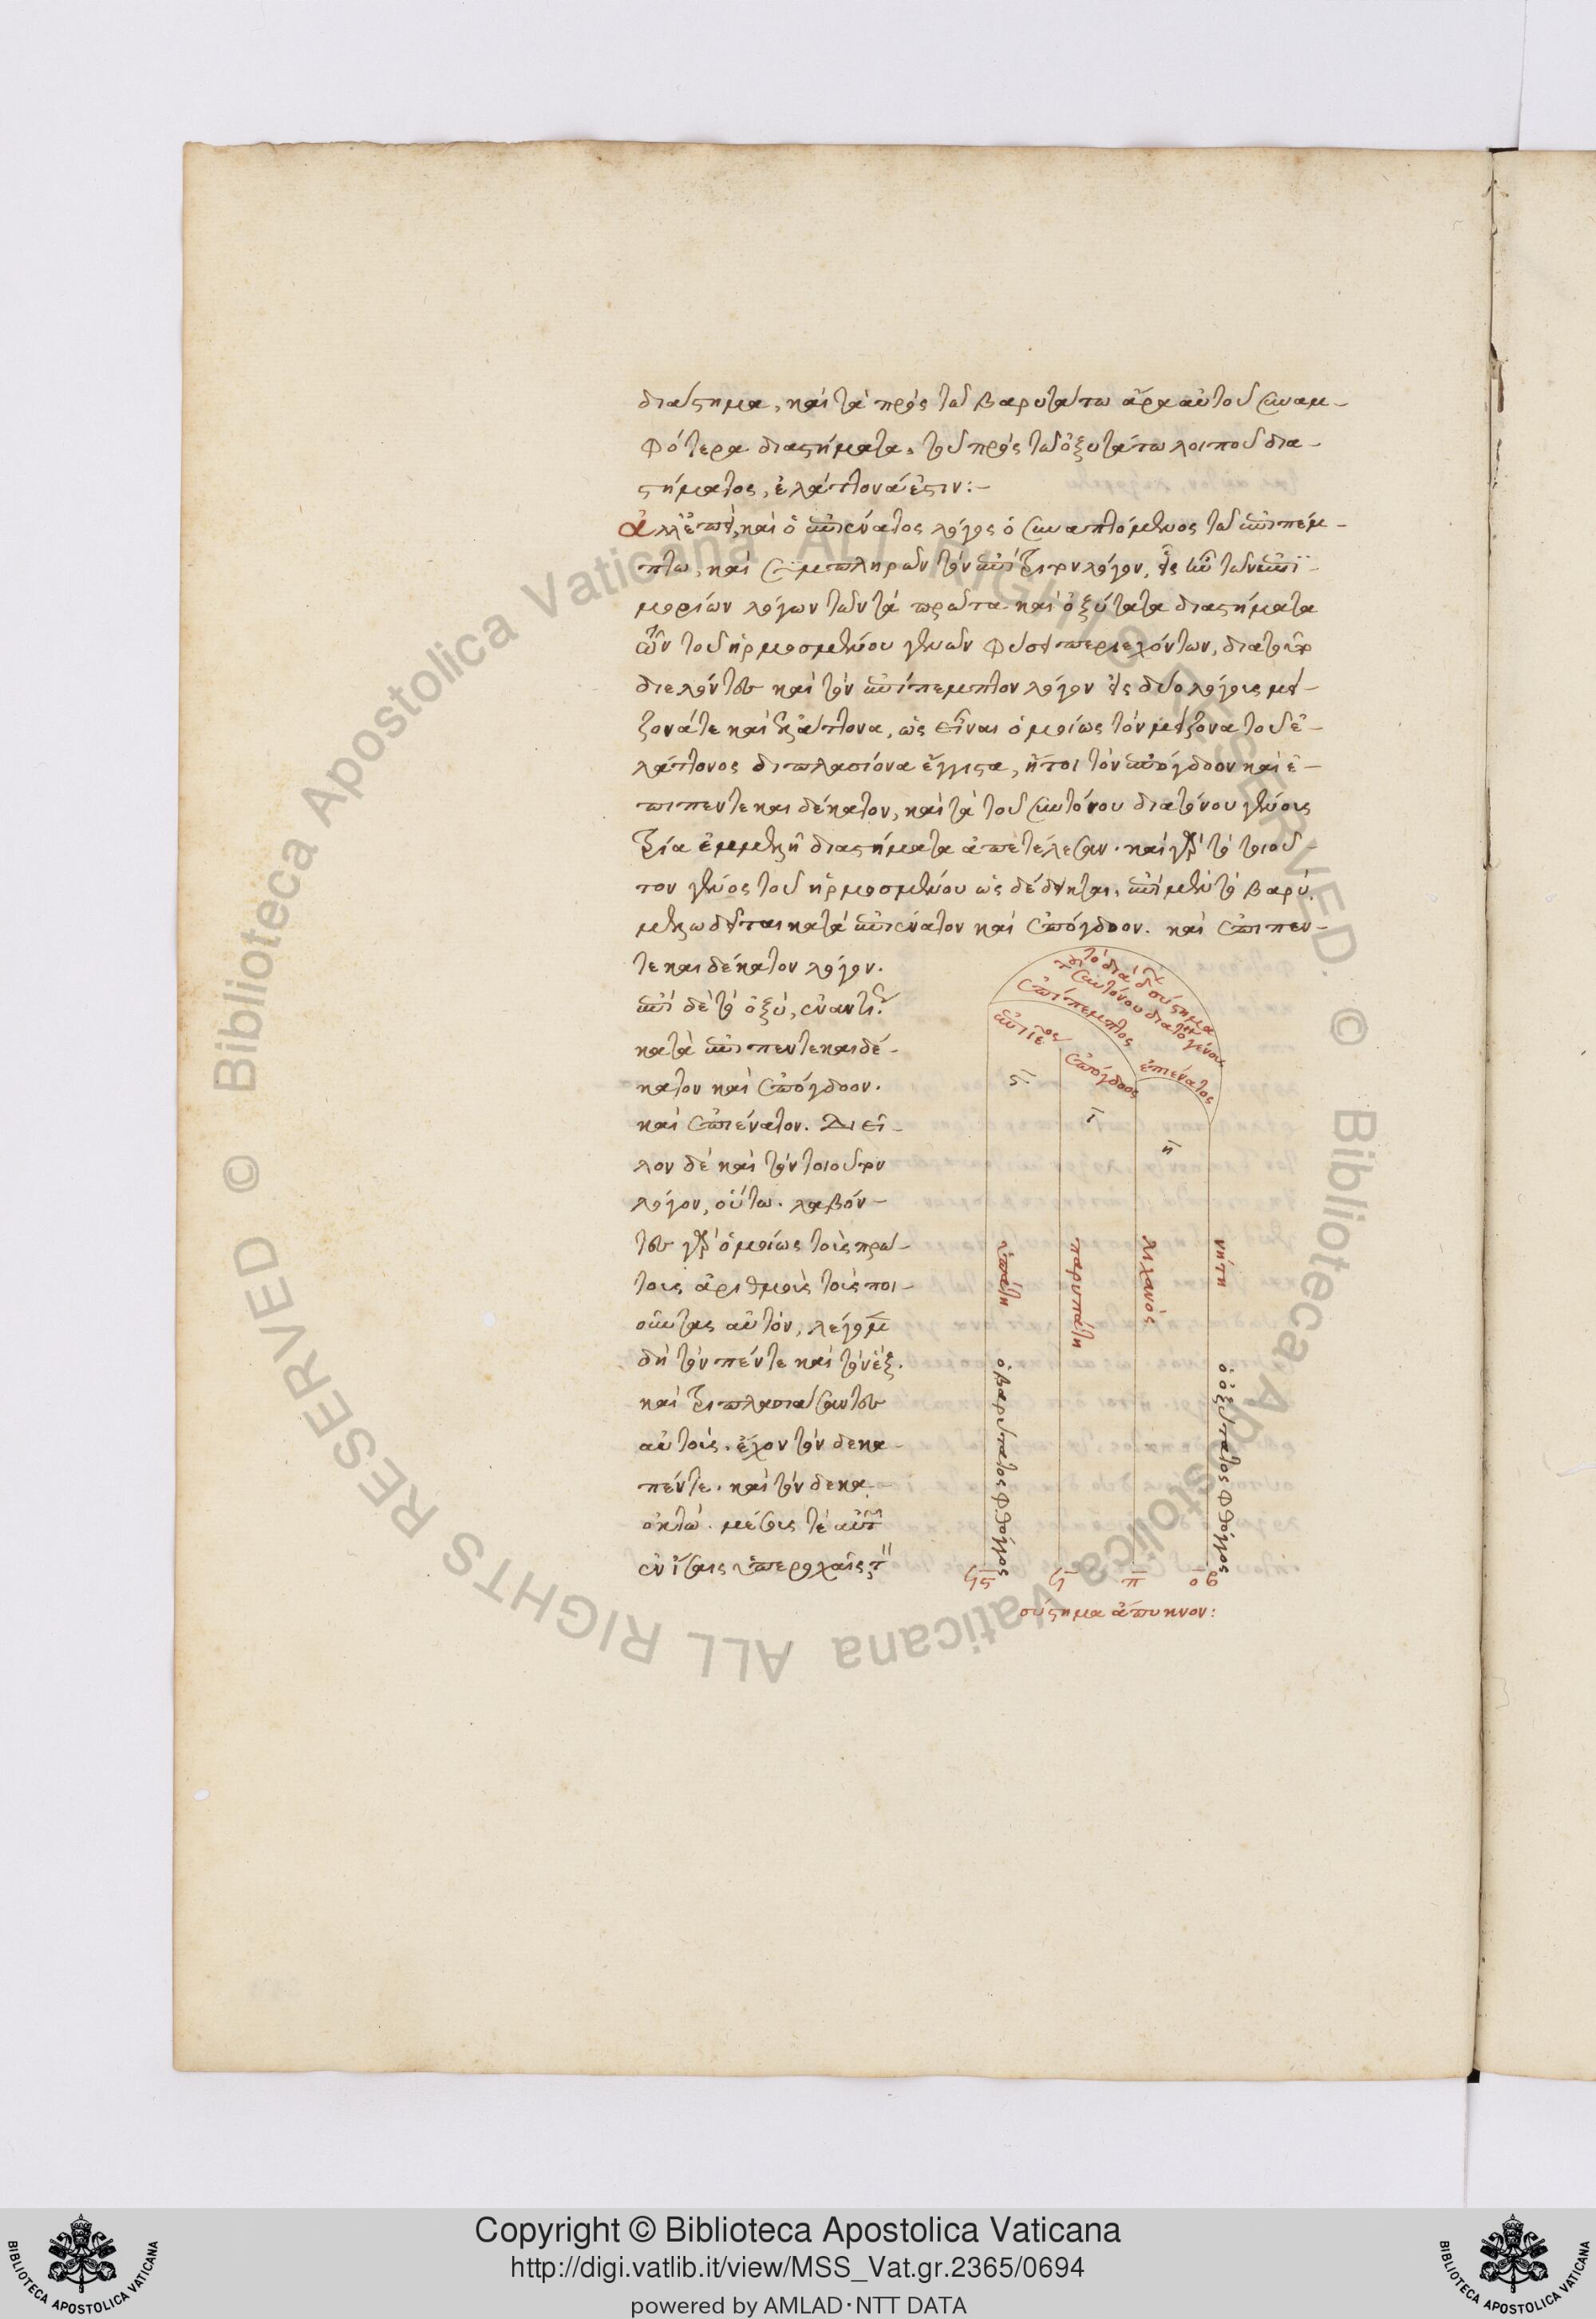 διάστημα, καὶ τὰ πρὸς τῶ βαρυτάτω ἄρα αὐτοῦ συναμ-
φότερα διαστήματα, τοῦ πρὸς τῶ ὀξυτάτω λοιποῦ δια-
στήματος, ἐλάττονά ἐστιν:-
ἀλλ' ἐπεὶ, καὶ ὁ ἐπιένατος λόγος ὁ συναπτόμενος τῶ ἐπιπέμ-
πτω, καὶ συμπληρῶν τὸν ἐπίτριτον λόγον, εἷς ἦν τῶν ἐπι-
μορίων λόγων τῶν τὰ πρῶτα καὶ ὀξύτατα διαστήματα
τῶν τοῦ ἡρμοσμένου γενῶν φύσει περιεχόντων, διατοῦτο
διελόντες καὶ τὸν ἐπίπεμπτον λόγον εἰς δύο λόγους μεί-
ζονά τε καὶ ἐλάττονα, ὡς εἶναι ὁμοίως τὸν μείζονα τοῦ ἐ-
λάττονος διπλασίονα ἔγγιστα, ἤτοι τὸν ἐπόγδοον καὶ ἐ-
πιπεντεκαιδέκατον, καὶ τὰ τοῦ συντόνου διατόνου γένους
τρία ἐμμελῆ διαστήματα ἀπετέλεσαν. καὶ γὰρ τὸ τοιοῦ-
τον γένος τοῦ ἡρμοσμένου ὡς δέδεικται, ἐπὶ μὲν τὸ βαρύ
μελωδεῖται κατὰ ἐπιένατον καὶ ἐπόγδοον. καὶ ἐπιπεν-
τεκαιδέκατον λόγον.
ἐπὶ δὲ τὸ ὀξὺ, ἐναντί
κατὰ ἐπιπεντεκαιδέ-
κατον καὶ ἐπόγδοον.
καὶ ἐπιένατον. Διεῖ-
λον δὲ καὶ τὸν τοιοῦτον
λόγον, οὕτω. λαβόν-
τες γὰρ ὁμοίως τοὺς πρώ-
τους ἀριθμοὺς τοὺς ποι-
οῦντας αὐτὸν, λέγομεν
δὴ τὸν πέντε καὶ τὸν ἓξ.
καὶ τριπλασιάσαντες
αὐτοὺς. ἔχον τὸν δεκα-
πέντε. καὶ τὸν δεκα-
οκτώ. μέσους τὲ αὐτῶν
ἐν ἴσαις ὑπεροχαῖς
τὸ διὰ δ σύστημα
τοῦ συντόνου διατόνου γένους
ἐπίπεμπτος
ἐπὶ ιε ος
ἐπόγδοος
ἐπιένατος
ϛ
ι
η
ὑπάτη
παρυπάτη
λιχανός
νήτη
ὁ βαρύτατος φθόγγος
ὁ ὀξύτατος φθόγγος
ϟϛ
ϟ
π
οβ
σύστημα ἄπυκνον:
Copyright © Biblioteca Apostolica Vaticana
http://digi.vatlib.it/view/MSS_Vat.gr.2365/0694
powered by AMLAD·NTT DATA
BIBLIOTECA APOSTOLICA VATICANA
BIBLIOTECA APOSTOLICA VATICANA
© Biblioteca Apostolica Vaticana ALL RIGHTS RESERVED.
© Biblioteca Apostolica Vaticana ALL RIGHTS RESERVED